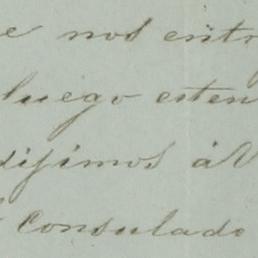 e nos entr
luego esten
dijimos á V
Consulado